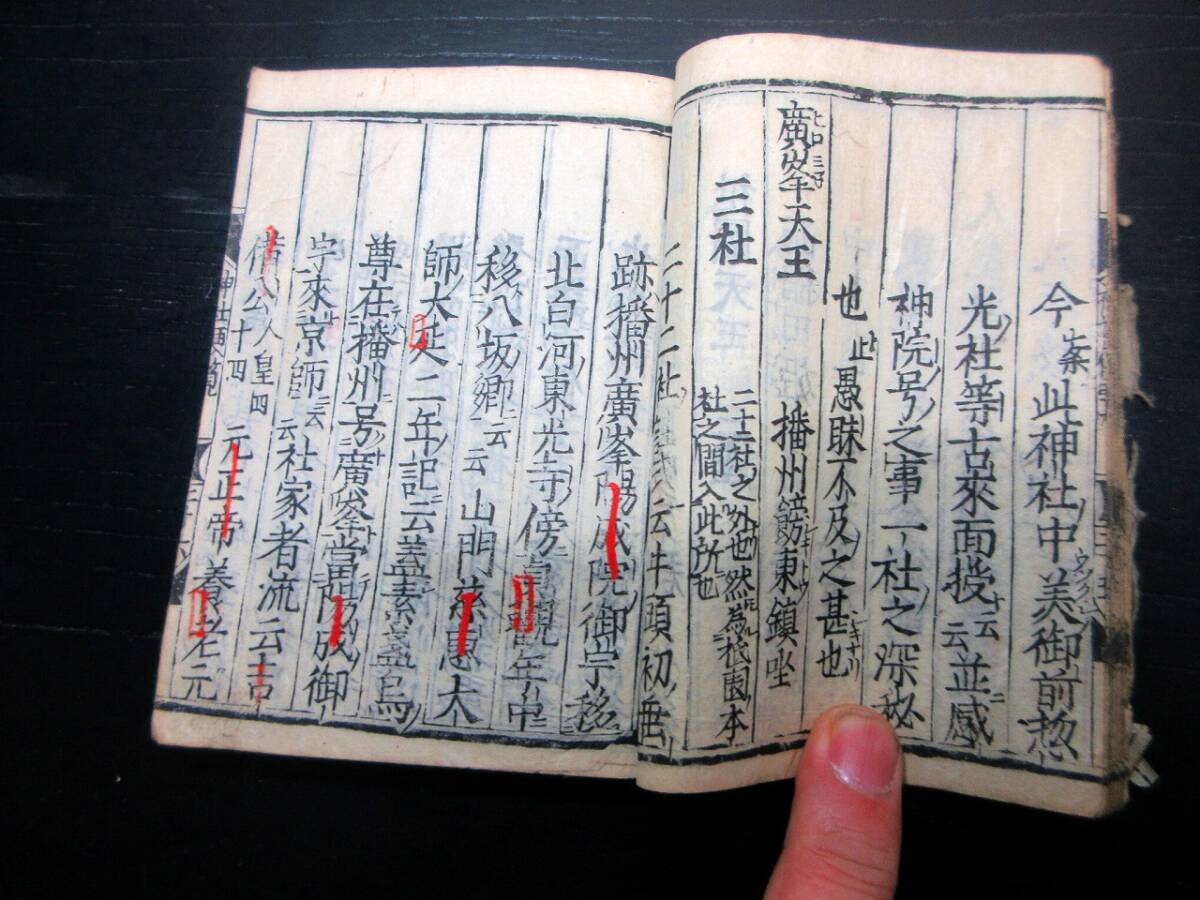 今案此神社中美御前惣
光ノ社等古來面授ナリト云並ニ感
神院ノ号之事一社之深秘
也ト止愚昧不及之甚シキナリ也
廣峯天王 播州餝東鎮坐
三社 二十二社之外也然為祇園ノ本
社之間入此所也
二十二社 云牛頭初メ垂
跡播州廣峯陽成院御宇移
北白河東光寺傍貞觀年中
移八坂郷ニト云山門慈恵大
師ノ大延二年記ニ云蓋素盞烏
尊在播州号廣峯當陽成御
宇來京師ニト云社家者流云吉
備公人皇四十四元正帝養老元